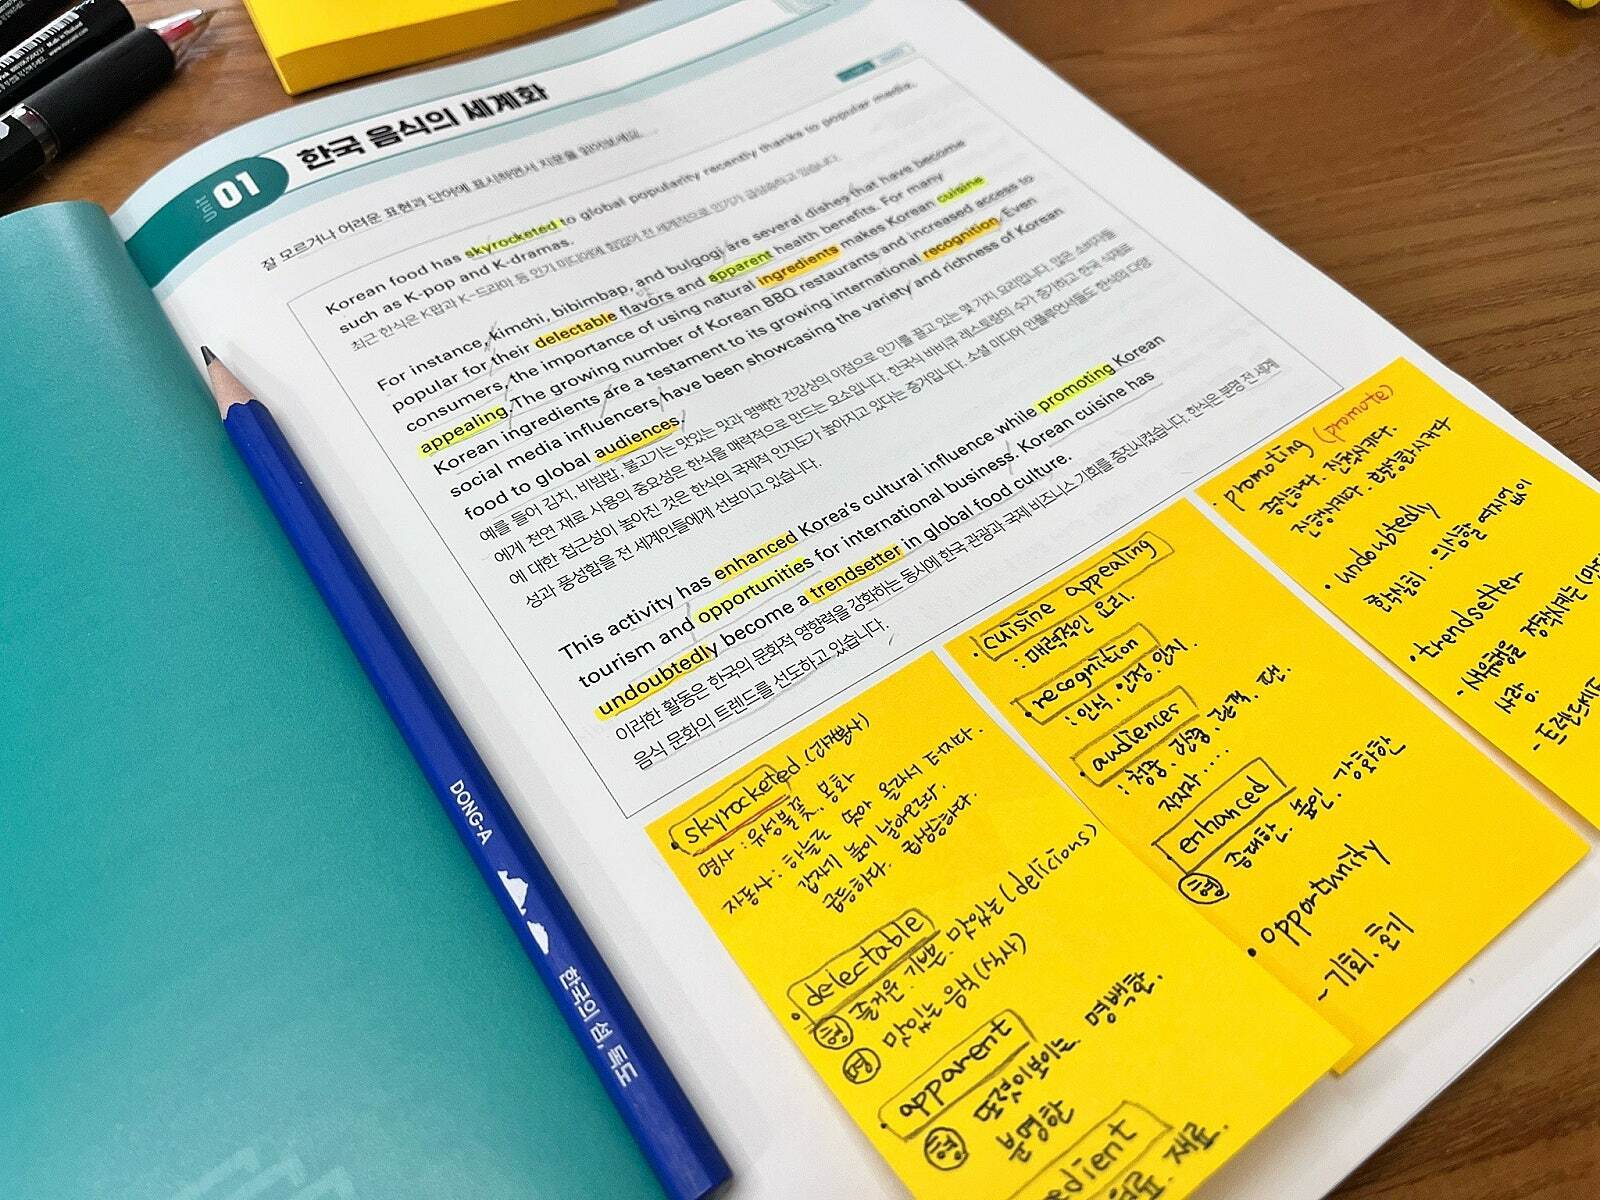 Made in Thailand
Unit 01
한국 음식의 세계화
잘 모르거나 어려운 표현과 단어에 표시하면서 지문을 읽어보세요.
Korean food has skyrocketed to global popularity recently thanks to popular media,
such as K-pop and K-dramas.
최근 한식은 K팝과 K-드라마 등 인기 미디어에 힘입어 전 세계적으로 인기가 급상승하고 있습니다.
For instance, kimchi, bibimbap, and bulgogi are several dishes that have become
popular for their delectable flavors and apparent health benefits. For many
consumers, the importance of using natural ingredients makes Korean cuisine
appealing. The growing number of Korean BBQ restaurants and increased access to
Korean ingredients are a testament to its growing international recognition. Even
social media influencers have been showcasing the variety and richness of Korean
food to global audiences.
예를 들어 김치, 비빔밥, 불고기는 맛있는 맛과 명백한 건강상의 이점으로 인기를 끌고 있는 몇 가지 요리입니다. 많은 소비자들
에게 천연 재료 사용의 중요성은 한식을 매력적으로 만드는 요소입니다. 한국식 바비큐 레스토랑의 수가 증가하고 한국 식재료
에 대한 접근성이 높아진 것은 한식의 국제적 인지도가 높아지고 있다는 증거입니다. 소셜 미디어 인플루언서들도 한식의 다양
성과 풍성함을 전 세계인들에게 선보이고 있습니다.
This activity has enhanced Korea's cultural influence while promoting Korean
tourism and opportunities for international business. Korean cuisine has
undoubtedly become a trendsetter in global food culture.
이러한 활동은 한국의 문화적 영향력을 강화하는 동시에 한국 관광과 국제 비즈니스 기회를 증진시켰습니다. 한식은 분명 전 세계
음식 문화의 트렌드를 선도하고 있습니다.
DONG-A 한국의 섬, 독도
skyrocketed (과거분사)
명사 : 유성불꽃, 봉화
자동사 : 하늘로 쏫아 올라서 터지다.
갑자기 높이 날아오르다.
급등하다. 급상승하다.
delectable
형 즐거운. 기쁜. 맛있는 (delicious)
명 맛있는 음식 (식사)
apparent
형 또렷이보이는. 명백한.
분명한
edient
재료.
cuisine appealing
: 매력적인 요리.
recognition
: 인식. 인정. 인지.
audiences
: 청중. 관중. 관객. 팬.
지지자....
enhanced
형 증대한. 높인. 강화한
opportunity
~ 기회. 호기
promoting (promote)
증진하다. 진척시키다.
진행시키다. 활성화시키다
undoubtedly
확실히. 의심할 여지없이
trendsetter
새유행을 정착시키는
사람.
트렌드세터